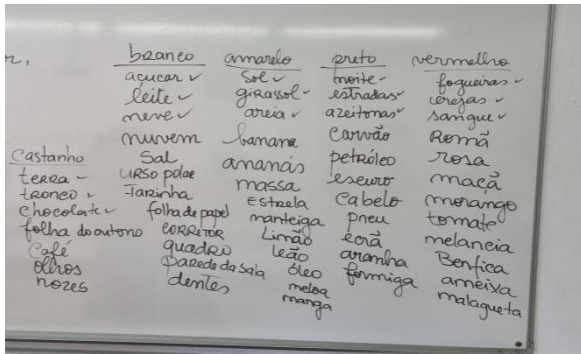 castanho
terra
tronco
chocolate
folha do outono
Café
olhos
nozes
branco
açucar
leite
neve
nuvem
Sal
urso polar
Farinha
folha de papel
corretor
quadro
parede da sala
dentes
amarelo
Sol
girassol
areia
banana
ananás
massa
Estrela
manteiga
Limão
leão
óleo
meloa
manga
preto
noite
estradas
azeitonas
carvão
petróleo
escuro
cabelo
pneu
ecrã
aranha
formiga
vermelho
fogueiras
cerejas
sangue
Romã
rosa
maçã
morango
tomate
melancia
Benfica
ameixa
malagueta